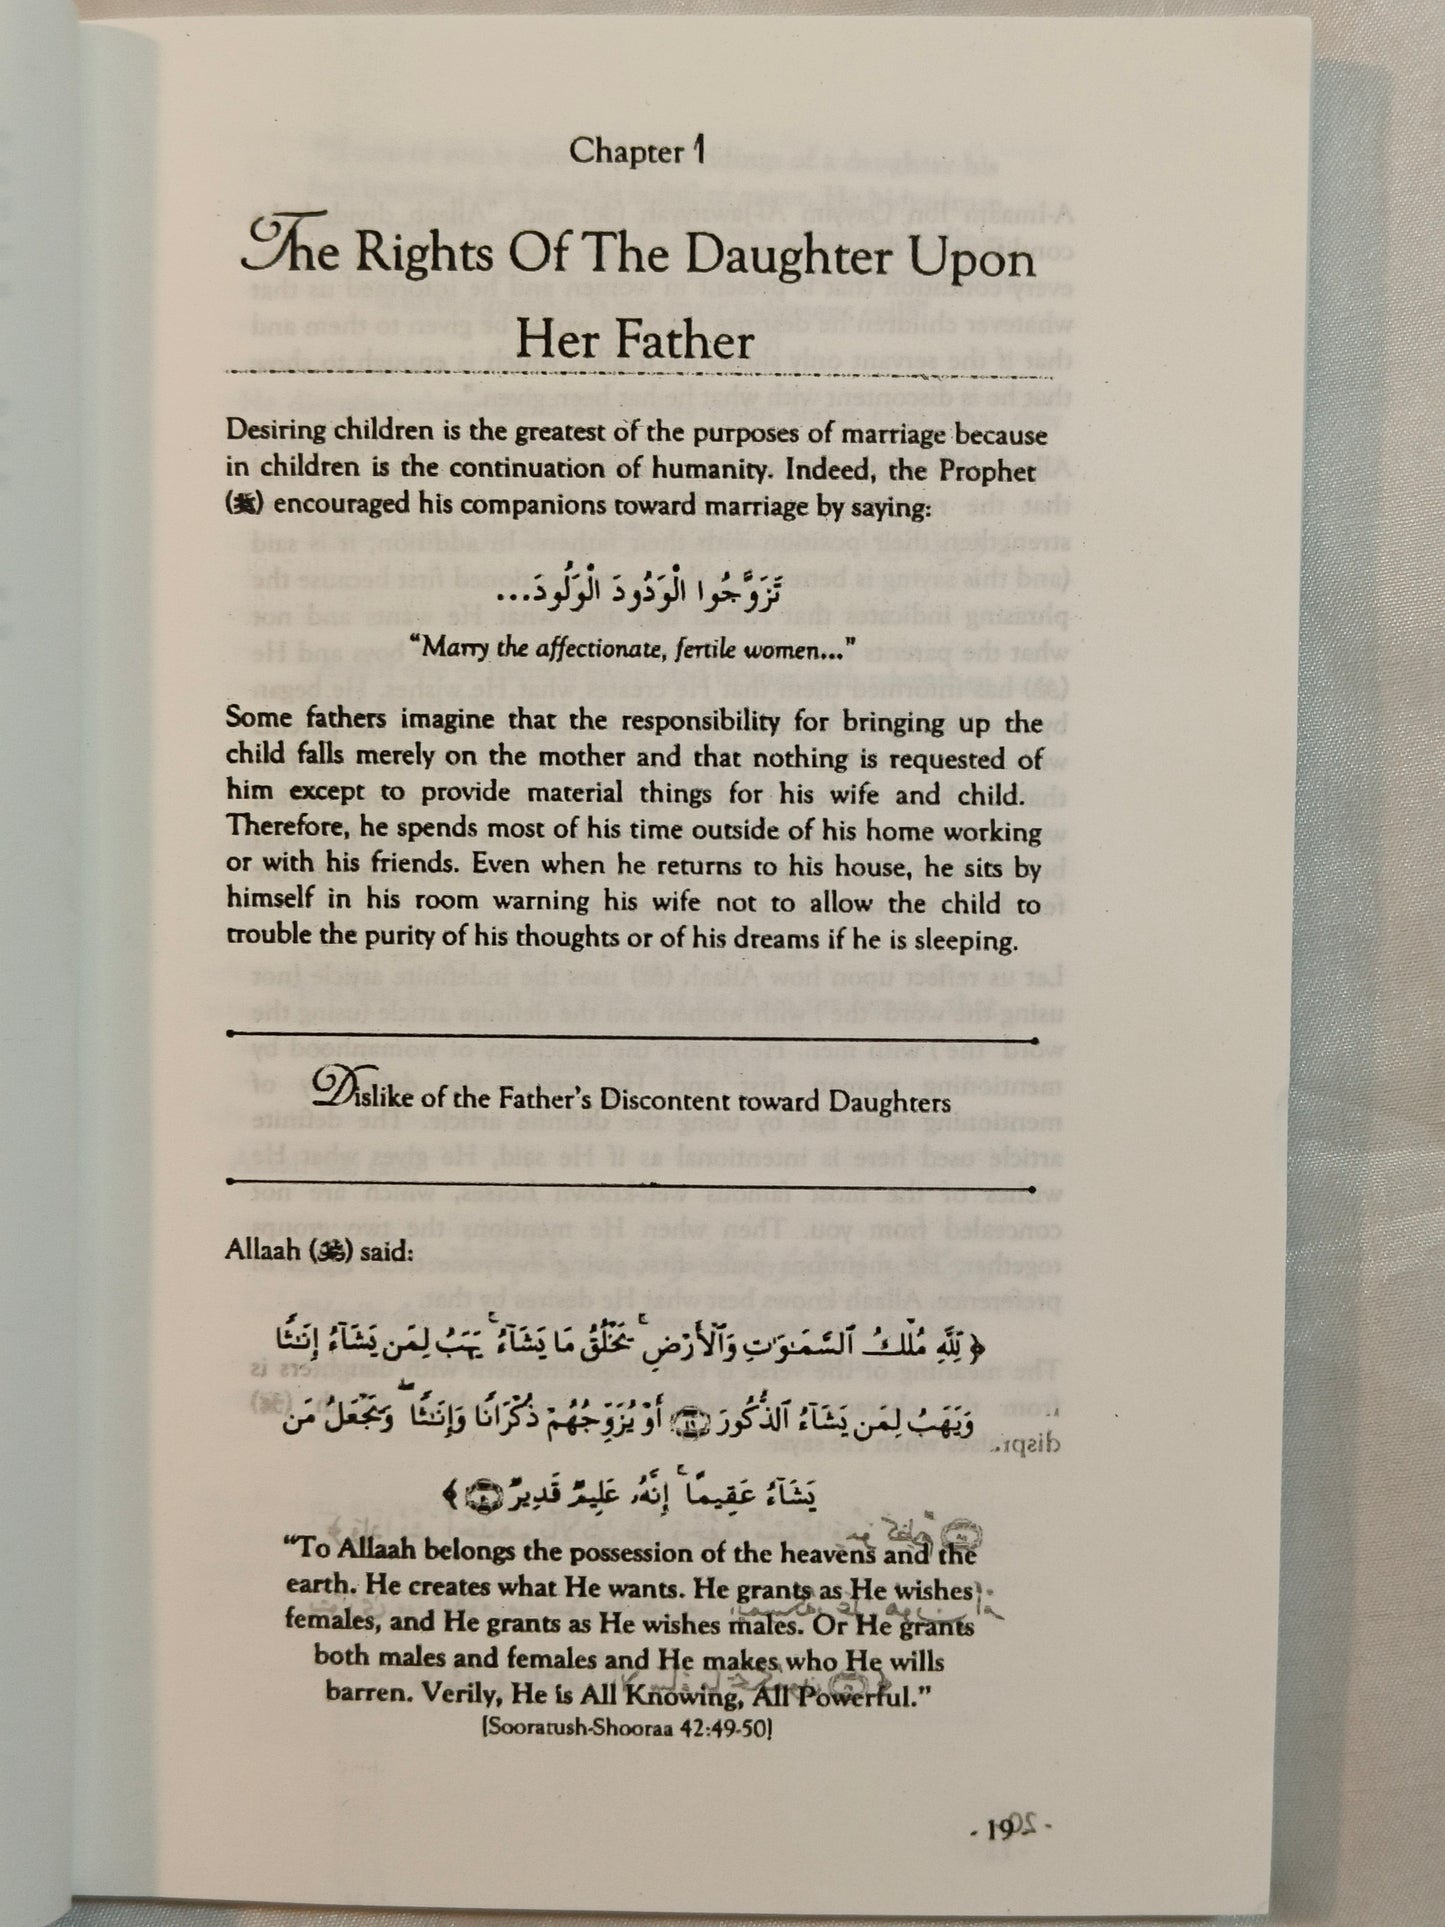 Chapter 1
The Rights Of The Daughter Upon
Her Father
Desiring children is the greatest of the purposes of marriage because
in children is the continuation of humanity. Indeed, the Prophet
(ﷺ) encouraged his companions toward marriage by saying:
تَزَوَّجُوا الْوَدُودَ الْوَلُودَ...
"Marry the affectionate, fertile women..."
Some fathers imagine that the responsibility for bringing up the
child falls merely on the mother and that nothing is requested of
him except to provide material things for his wife and child.
Therefore, he spends most of his time outside of his home working
or with his friends. Even when he returns to his house, he sits by
himself in his room warning his wife not to allow the child to
trouble the purity of his thoughts or of his dreams if he is sleeping.
Dislike of the Father's Discontent toward Daughters
Allaah () said:
﴿ لِلَّهِ مُلْكُ ٱلسَّمَـٰوَٰتِ وَٱلْأَرْضِ ۚ يَخْلُقُ مَا يَشَآءُ ۚ يَهَبُ لِمَن يَشَآءُ إِنَـٰثًا
وَيَهَبُ لِمَن يَشَآءُ ٱلذُّكُورَ ۝ أَوْ يُزَوِّجُهُمْ ذُكْرَانًا وَإِنَـٰثًا ۖ وَيَجْعَلُ مَن
يَشَآءُ عَقِيمًا ۚ إِنَّهُۥ عَلِيمٌ قَدِيرٌ ۝ ﴾
"To Allaah belongs the possession of the heavens and the
earth. He creates what He wants. He grants as He wishes
females, and He grants as He wishes males. Or He grants
both males and females and He makes who He wills
barren. Verily, He is All Knowing, All Powerful."
[Sooratush-Shooraa 42:49-50]
- 19